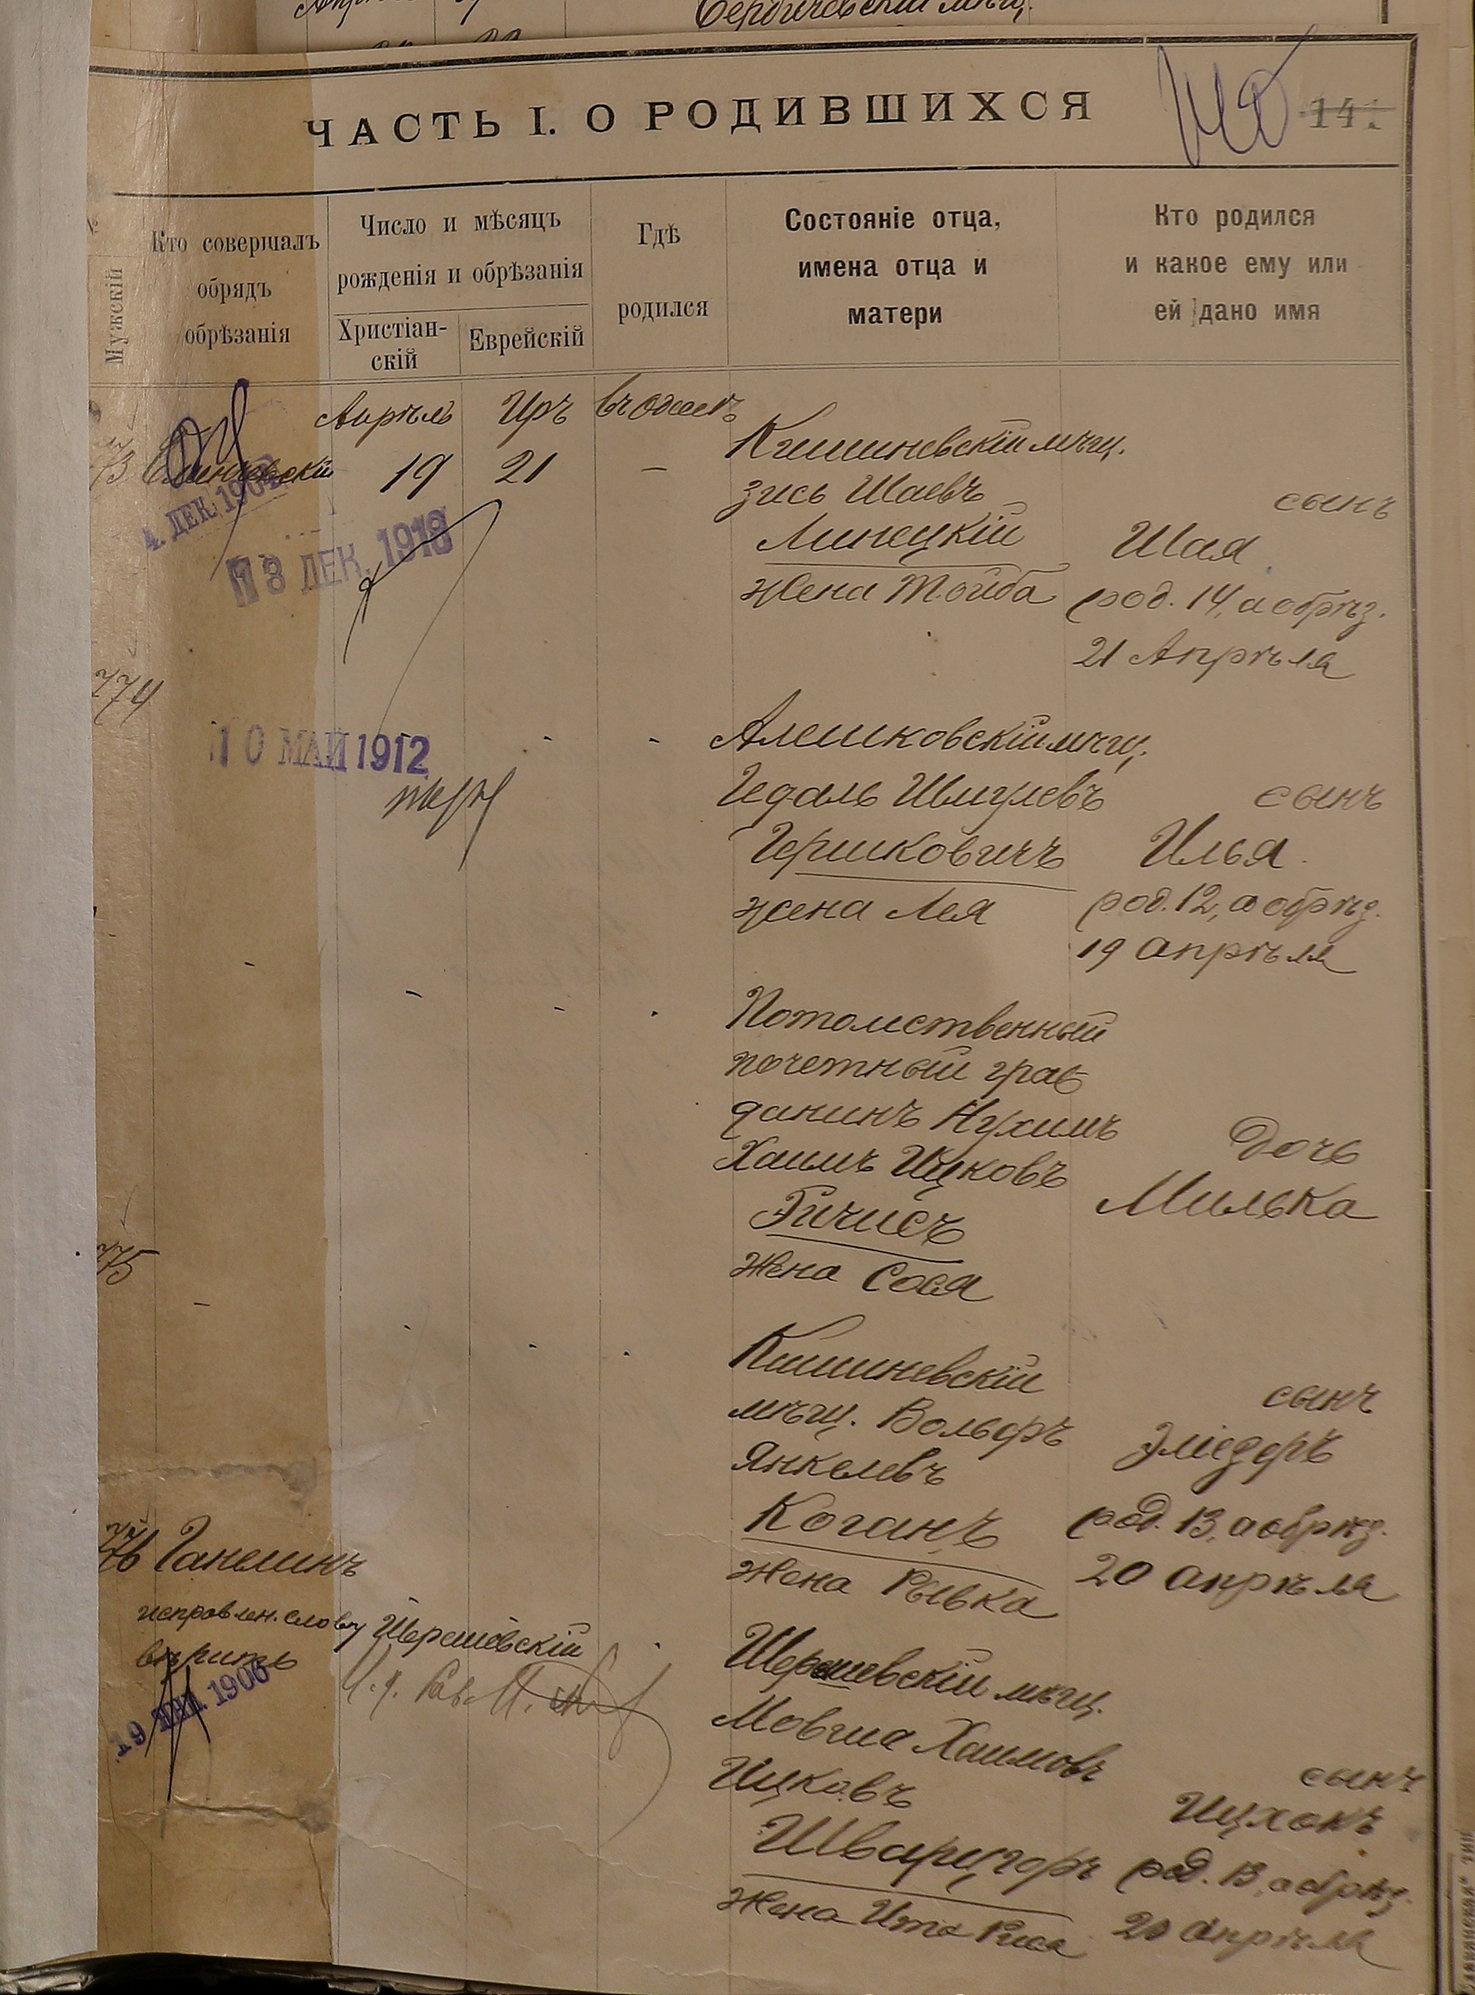 Бердичевскій мѣщ.
ЧАСТЬ I. О РОДИВШИХСЯ
141
№
Мужскій
Кто совершалъ
обрядъ
обрѣзанія
Число и мѣсяцъ
рожденія и обрѣзанія
Христіан-
скій
Еврейскій
Гдѣ
родился
Состояніе отца,
имена отца и
матери
Кто родился
и какое ему или
ей дано имя
Апрѣль Іръ въ Одессѣ
19 21 —
Кишиневскій мѣщ.
Зись Шаевъ
Линецкій
жена Тойба
сынъ
Шая
род. 14, а обрѣз.
21 Апрѣля
4. ДЕК. 190
13 ДЕК. 1918
774
10 МАЙ 1912
Алешковскій мѣщ.
Гедаль Шмулевъ
Гершковичъ
жена Лея
сынъ
Илья
род. 12, а обрѣз.
19 апрѣля
Потомственный
почетный граж
данинъ Нухимъ
Хаимъ Ицковъ
Гичисъ
жена Сося
Дочь
Милька
775
Кишиневскій
мѣщ. Вольфъ
Янкелевъ
Коганъ
жена Рывка
сынъ
род. 13, а обрѣз.
20 апрѣля
776 Ганелинъ
исправлен. слову Шерешевскій
вѣрить
19 1906
Шерешевскій мѣщ.
Мовша Хаимовъ
Ицковъ
Шварцгоръ
жена Ита Риса
сынъ
Ицхокъ
род. 13, а обрѣз.
20 апрѣля